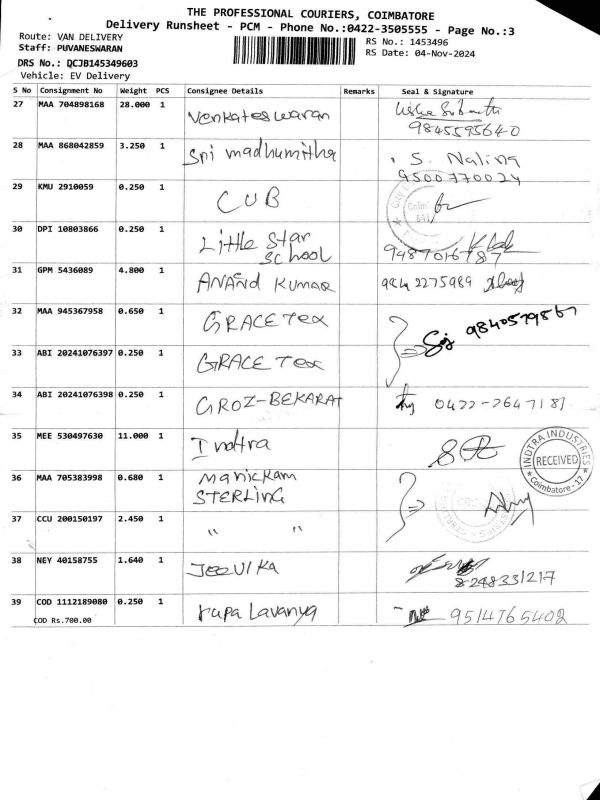 THE PROFESSIONAL COURIERS, COIMBATORE
Delivery Runsheet - PCM - Phone No.:0422-3505555 - Page No.:3
Route: VAN DELIVERY
Staff: PUVANESWARAN
RS No.: 1453496
RS Date: 04-Nov-2024
DRS No.: QCJB145349603
Vehicle: EV Delivery
S No Consignment No Weight PCS Consignee Details Remarks Seal & Signature
27 MAA 704898168 28.000 1 Venkateswaran
9845595640
28 MAA 868042859 3.250 1 Sri madhumitha S. Nalina
9500770024
29 KMU 2910059 0.250 1 CUB
30 DPI 10803866 0.250 1 Little Star School
9487016787
31 GPM 5436089 4.800 1 ANAND KUMAR 9842275989
32 MAA 945367958 0.650 1 GRACE Tex
33 ABI 20241076397 0.250 1 GRACE Tex
34 ABI 20241076398 0.250 1 GROZ-BEKARAT 0422-2647181
35 MEE 530497630 11.000 1 Indtra
INDTRA INDUSTRIES
RECEIVED
Coimbatore - 17
36 MAA 705383998 0.680 1 Manickam
STERLING
37 CCU 200150197 2.450 1 " "
38 NEY 40158755 1.640 1 JEEVIKA
8248331217
39 COD 1112189080 0.250 1 rupa Lavanya 9514765402
COD Rs.700.00